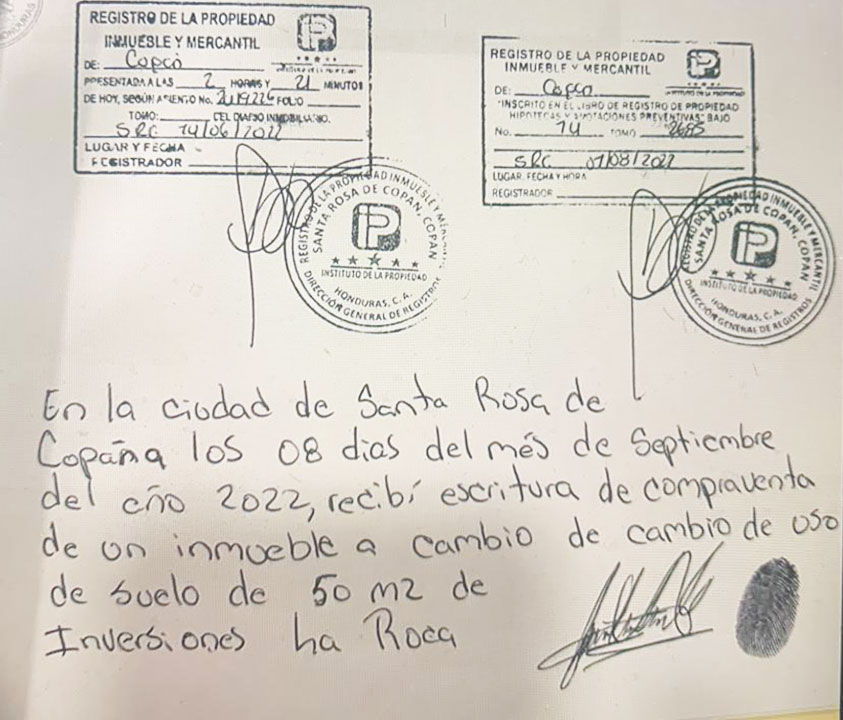 REGISTRO DE LA PROPIEDAD
INMUEBLE Y MERCANTIL
DE: Copán
PRESENTADA A LAS 2 HORAS Y 21 MINUTOS
DE HOY, SEGÚN ASIENTO No. FOLIO
TOMO: DEL DIARIO INMOBILIARIO.
SRC 14/06/2022
LUGAR Y FECHA
REGISTRADOR
REGISTRO DE LA PROPIEDAD
INMUEBLE Y MERCANTIL
DE: Copan
"INSCRITO EN EL LIBRO DE REGISTRO DE PROPIEDAD
HIPOTECAS Y ANOTACIONES PREVENTIVAS" BAJO
No. 74 TOMO 2685
SRC 01/08/2022
LUGAR, FECHA Y HORA
REGISTRADOR
REGISTRO DE LA PROPIEDAD INMUEBLE Y
SANTA ROSA DE COPAN, COPAN
IP
INSTITUTO DE LA PROPIEDAD
HONDURAS, C.A.
DIRECCIÓN GENERAL DE REGISTROS
REGISTRO DE LA PROPIEDAD INMUEBLE Y MERCANTIL
SANTA ROSA DE COPAN, COPAN
IP
INSTITUTO DE LA PROPIEDAD
HONDURAS, C.A.
DIRECCIÓN GENERAL DE REGISTROS
En la ciudad de Santa Rosa de
Copána los 08 dias del més de Septiembre
del año 2022, recibí escritura de compraventa
de un inmueble a cambio de cambio de uso
de suelo de 50 m2 de
Inversiones La Roca